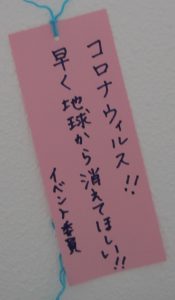 コロナウィルス!!
早く地球から消えてほしい!!
イベント委員